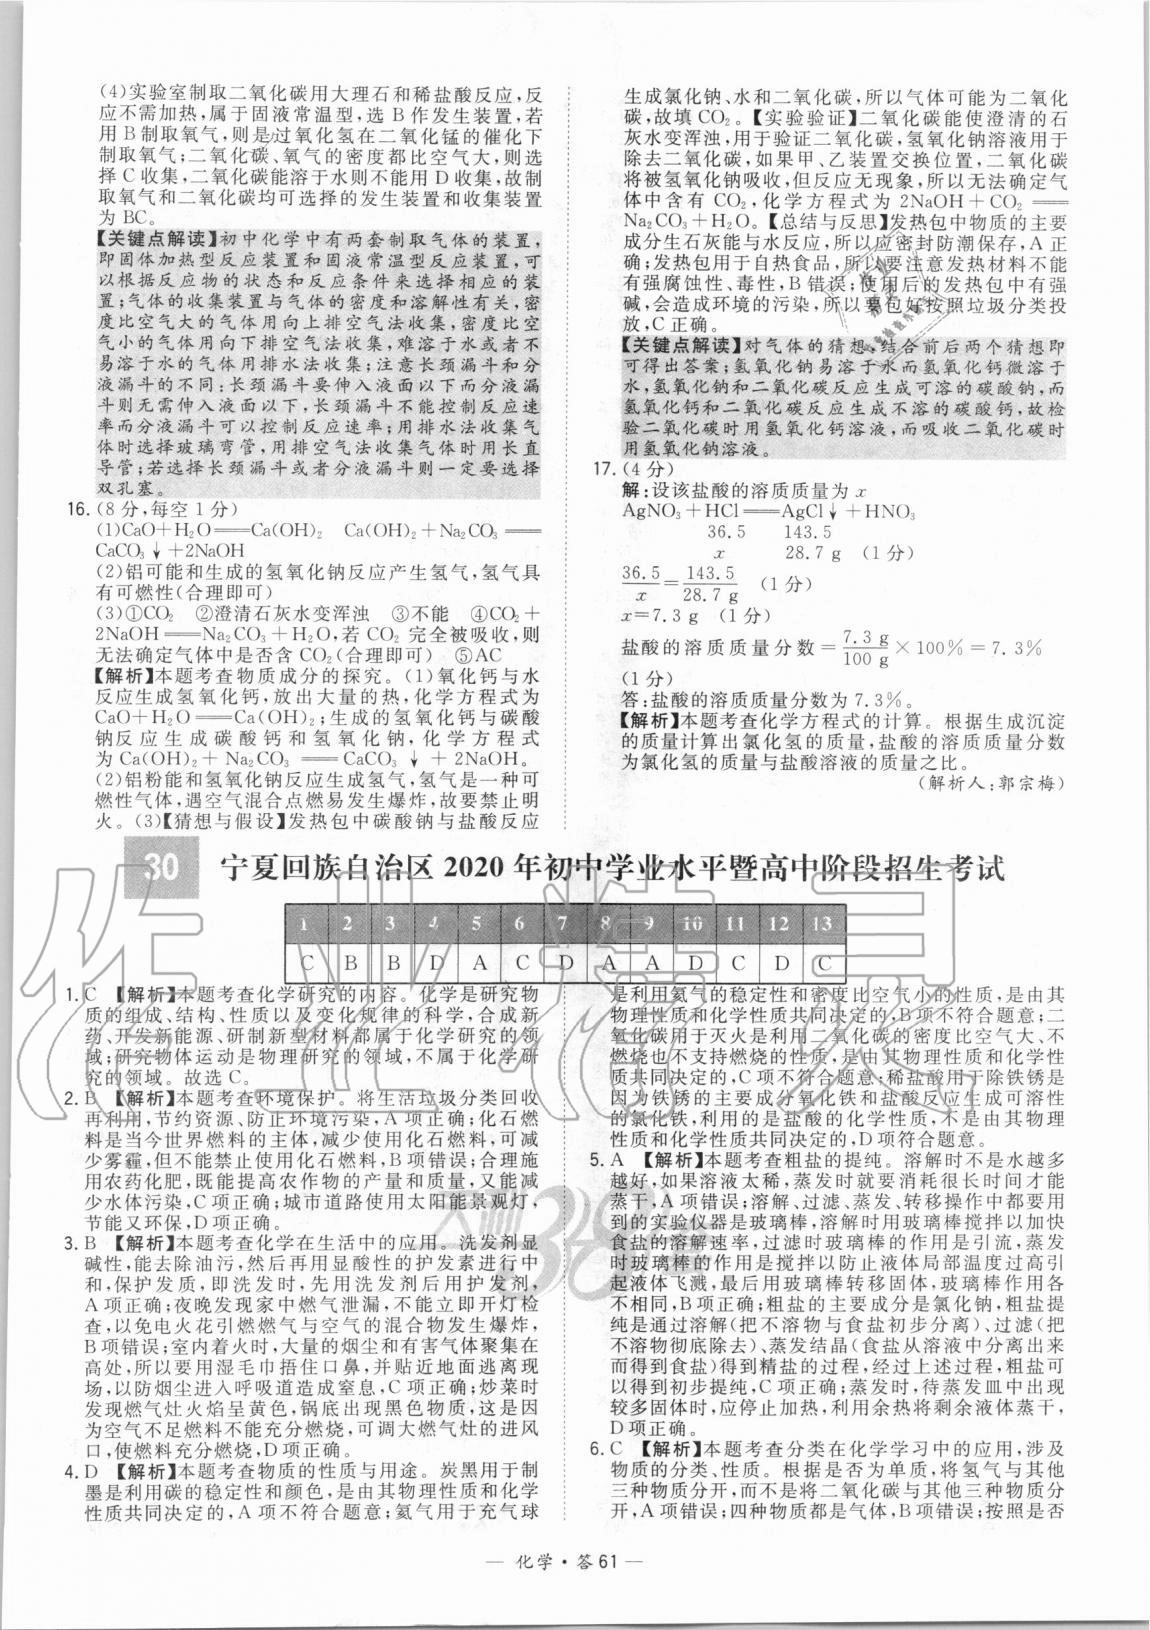 (4)实验室制取二氧化碳用大理石和稀盐酸反应,反
应不需加热,属于固液常温型,选 B 作发生装置,若
用 B 制取氧气,则是过氧化氢在二氧化锰的催化下
制取氧气;二氧化碳、氧气的密度都比空气大,则选
择 C 收集,二氧化碳能溶于水则不能用 D 收集,故制
取氧气和二氧化碳均可选择的发生装置和收集装置
为 BC。
【关键点解读】初中化学中有两套制取气体的装置,
即固体加热型反应装置和固液常温型反应装置,可
以根据反应物的状态和反应条件来选择相应的装
置;气体的收集装置与气体的密度和溶解性有关,密
度比空气大的气体用向上排空气法收集,密度比空
气小的气体用向下排空气法收集,难溶于水或者不
易溶于水的气体用排水法收集;注意长颈漏斗和分
液漏斗的不同:长颈漏斗要伸入液面以下而分液漏
斗则无需伸入液面以下,长颈漏斗不能控制反应速
率而分液漏斗可以控制反应速率;用排水法收集气
体时选择玻璃弯管,用排空气法收集气体时用长直
导管;若选择长颈漏斗或者分液漏斗则一定要选择
双孔塞。
16. (8 分,每空 1 分)
(1)CaO+H₂O══Ca(OH)₂ Ca(OH)₂+Na₂CO₃══
CaCO₃↓+2NaOH
(2)铝可能和生成的氢氧化钠反应产生氢气,氢气具
有可燃性(合理即可)
(3)①CO₂ ②澄清石灰水变浑浊 ③不能 ④CO₂+
2NaOH══Na₂CO₃+H₂O,若 CO₂ 完全被吸收,则
无法确定气体中是否含 CO₂(合理即可) ⑤AC
【解析】本题考查物质成分的探究。(1)氧化钙与水
反应生成氢氧化钙,放出大量的热,化学方程式为
CaO+H₂O══Ca(OH)₂;生成的氢氧化钙与碳酸
钠反应生成碳酸钙和氢氧化钠,化学方程式
为 Ca(OH)₂+Na₂CO₃══CaCO₃↓+2NaOH。
(2)铝粉能和氢氧化钠反应生成氢气,氢气是一种可
燃性气体,遇空气混合点燃易发生爆炸,故要禁止明
火。(3)【猜想与假设】发热包中碳酸钠与盐酸反应
生成氯化钠、水和二氧化碳,所以气体可能为二氧化
碳,故填 CO₂。【实验验证】二氧化碳能使澄清的石
灰水变浑浊,用于验证二氧化碳,氢氧化钠溶液用于
除去二氧化碳,如果甲、乙装置交换位置,二氧化碳
将被氢氧化钠吸收,但反应无现象,所以无法确定气
体中含有 CO₂,化学方程式为 2NaOH+CO₂══
Na₂CO₃+H₂O。【总结与反思】发热包中物质的主要
成分生石灰能与水反应,所以应密封防潮保存,A 正
确;发热包用于自热食品,所以要注意发热材料不能
有强腐蚀性、毒性,B 错误;使用后的发热包中有强
碱,会造成环境的污染,所以要包好按照垃圾分类投
放,C 正确。
【关键点解读】对气体的猜想,结合前后两个猜想即
可得出答案;氢氧化钠易溶于水而氢氧化钙微溶于
水,氢氧化钠和二氧化碳反应生成可溶的碳酸钠,而
氢氧化钙和二氧化碳反应生成不溶的碳酸钙,故检
验二氧化碳时用氢氧化钙溶液,而吸收二氧化碳时
用氢氧化钠溶液。
17. (4 分)
解:设该盐酸的溶质质量为 x
AgNO₃+HCl══AgCl↓+HNO₃
36.5 143.5
x 28.7 g (1 分)
36.5/x=143.5/28.7 g (1 分)
x=7.3 g (1 分)
盐酸的溶质质量分数=7.3 g/100 g×100%=7.3%
(1 分)
答:盐酸的溶质质量分数为 7.3%。
【解析】本题考查化学方程式的计算。根据生成沉淀
的质量计算出氯化氢的质量,盐酸的溶质质量分数
为氯化氢的质量与盐酸溶液的质量之比。
(解析人:郭宗梅)
30 宁夏回族自治区 2020 年初中学业水平暨高中阶段招生考试
1 2 3 4 5 6 7 8 9 10 11 12 13
C B B D A C D A A D C D C
1. C 【解析】本题考查化学研究的内容。化学是研究物
质的组成、结构、性质以及变化规律的科学,合成新
药、开发新能源、研制新型材料都属于化学研究的领
域;研究物体运动是物理研究的领域,不属于化学研
究的领域。故选 C。
2. B 【解析】本题考查环境保护。将生活垃圾分类回收
再利用,节约资源、防止环境污染,A 项正确;化石燃
料是当今世界燃料的主体,减少使用化石燃料,可减
少雾霾,但不能禁止使用化石燃料,B 项错误;合理施
用农药化肥,既能提高农作物的产量和质量,又能减
少水体污染,C 项正确;城市道路使用太阳能景观灯,
节能又环保,D 项正确。
3. B 【解析】本题考查化学在生活中的应用。洗发剂显
碱性,能去除油污,然后再用显酸性的护发素进行中
和,保护发质,即洗发时,先用洗发剂后用护发剂,
A 项正确;夜晚发现家中燃气泄漏,不能立即开灯检
查,以免电火花引燃燃气与空气的混合物发生爆炸,
B 项错误;室内着火时,大量的烟尘和有害气体聚集在
高处,所以要用湿毛巾捂住口鼻,并贴近地面逃离现
场,以防烟尘进入呼吸道造成窒息,C 项正确;炒菜时
发现燃气灶火焰呈黄色,锅底出现黑色物质,这是因
为空气不足燃料不能充分燃烧,可调大燃气灶的进风
口,使燃料充分燃烧,D 项正确。
4. D 【解析】本题考查物质的性质与用途。炭黑用于制
墨是利用碳的稳定性和颜色,是由其物理性质和化学
性质共同决定的,A 项不符合题意;氦气用于充气球
是利用氦气的稳定性和密度比空气小的性质,是由其
物理性质和化学性质共同决定的;B 项不符合题意;二
氧化碳用于灭火是利用二氧化碳的密度比空气大、不
燃烧也不支持燃烧的性质,是由其物理性质和化学性
质共同决定的,C 项不符合题意;稀盐酸用于除铁锈是
因为铁锈的主要成分氧化铁和盐酸反应生成可溶性
的氯化铁,利用的是盐酸的化学性质,不是由其物理
性质和化学性质共同决定的,D 项符合题意。
5. A 【解析】本题考查粗盐的提纯。溶解时不是水越多
越好,如果溶液太稀,蒸发时就要消耗很长时间才能
蒸干,A 项错误;溶解、过滤、蒸发、转移操作中都要用
到的实验仪器是玻璃棒,溶解时用玻璃棒搅拌以加快
食盐的溶解速率,过滤时玻璃棒的作用是引流,蒸发
时玻璃棒的作用是搅拌以防止液体局部温度过高引
起液体飞溅,最后用玻璃棒转移固体,玻璃棒作用各
不相同,B 项正确;粗盐的主要成分是氯化钠,粗盐提
纯是通过溶解(把不溶物与食盐初步分离)、过滤(把
不溶物彻底除去)、蒸发结晶(食盐从溶液中分离出来
而得到食盐)得到精盐的过程,经过上述过程,粗盐可
以得到初步提纯,C 项正确;蒸发时,待蒸发皿中出现
较多固体时,应停止加热,利用余热将剩余液体蒸干,
D 项正确。
6. C 【解析】本题考查分类在化学学习中的应用,涉及
物质的分类、性质。根据是否为单质,将氢气与其他
三种物质分开,而不是将二氧化碳与其他三种物质分
开,A 项错误;四种物质都是气体,B 项错误;按照是否
— 化学·答 61 —
作业精灵
天利38套